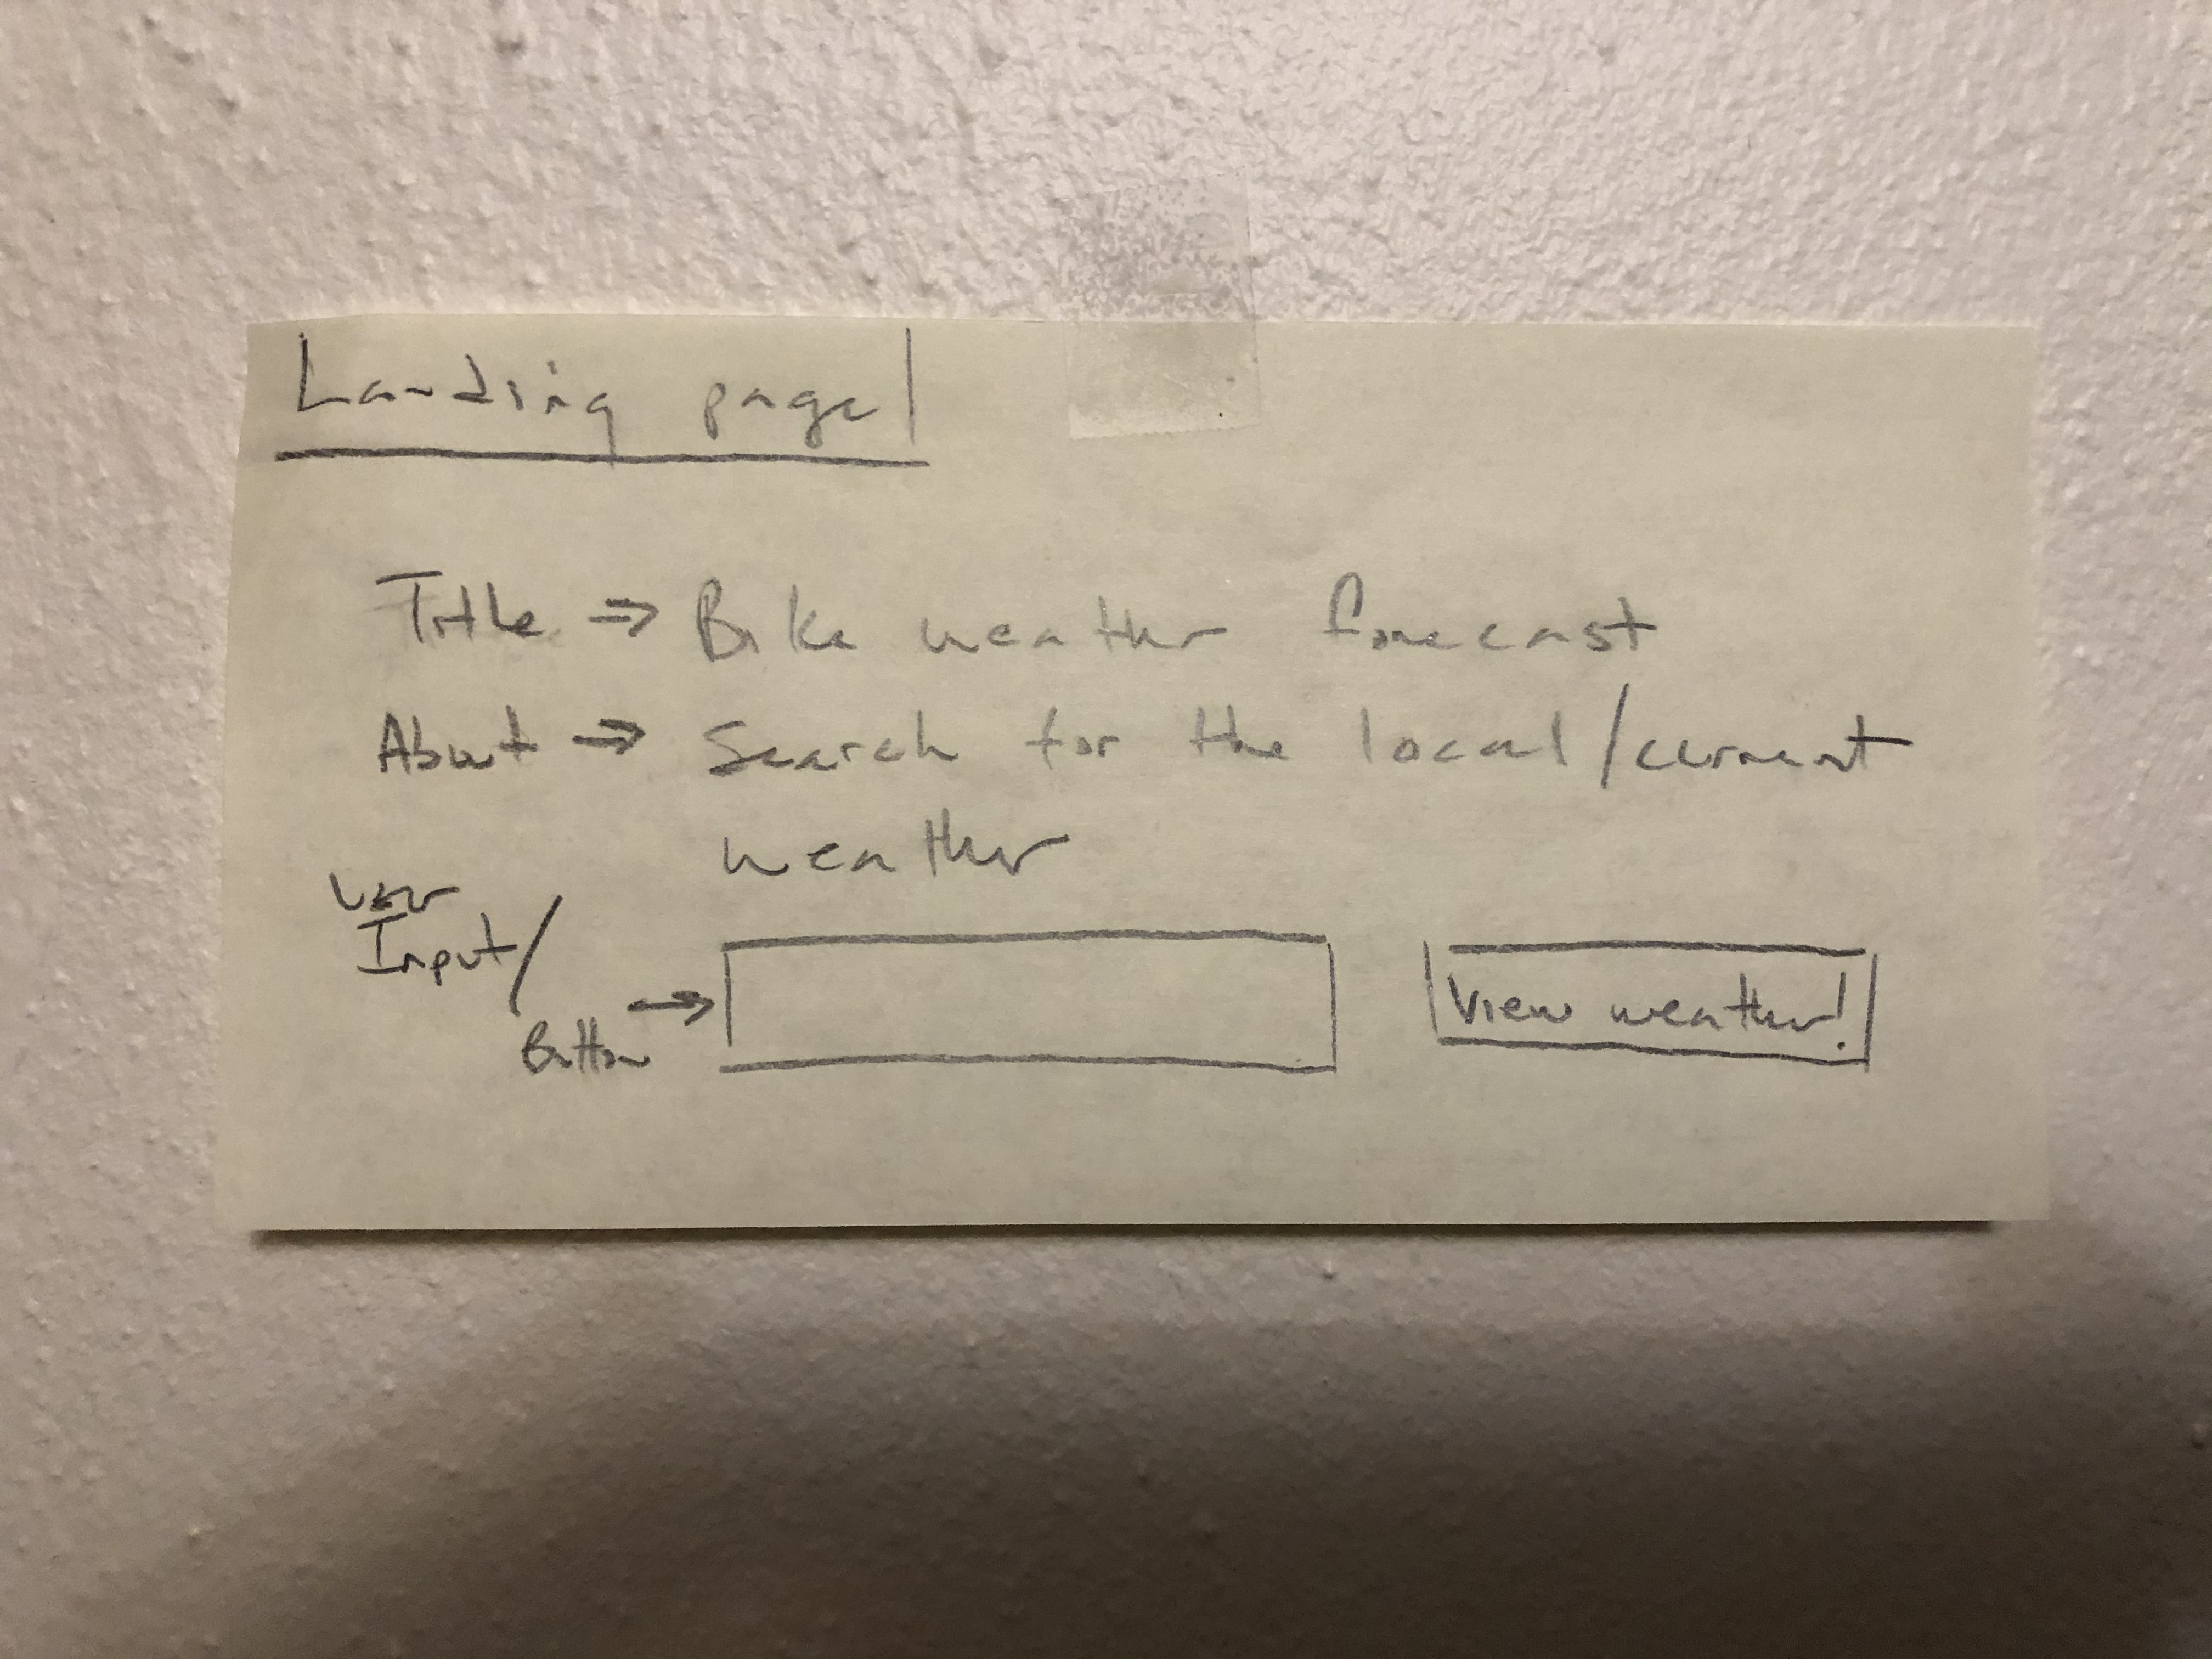 Landing page
Title ⇒ Bike weather forecast
About ⇒ Search for the local/current
weather
User
Input/
Button → View weather!